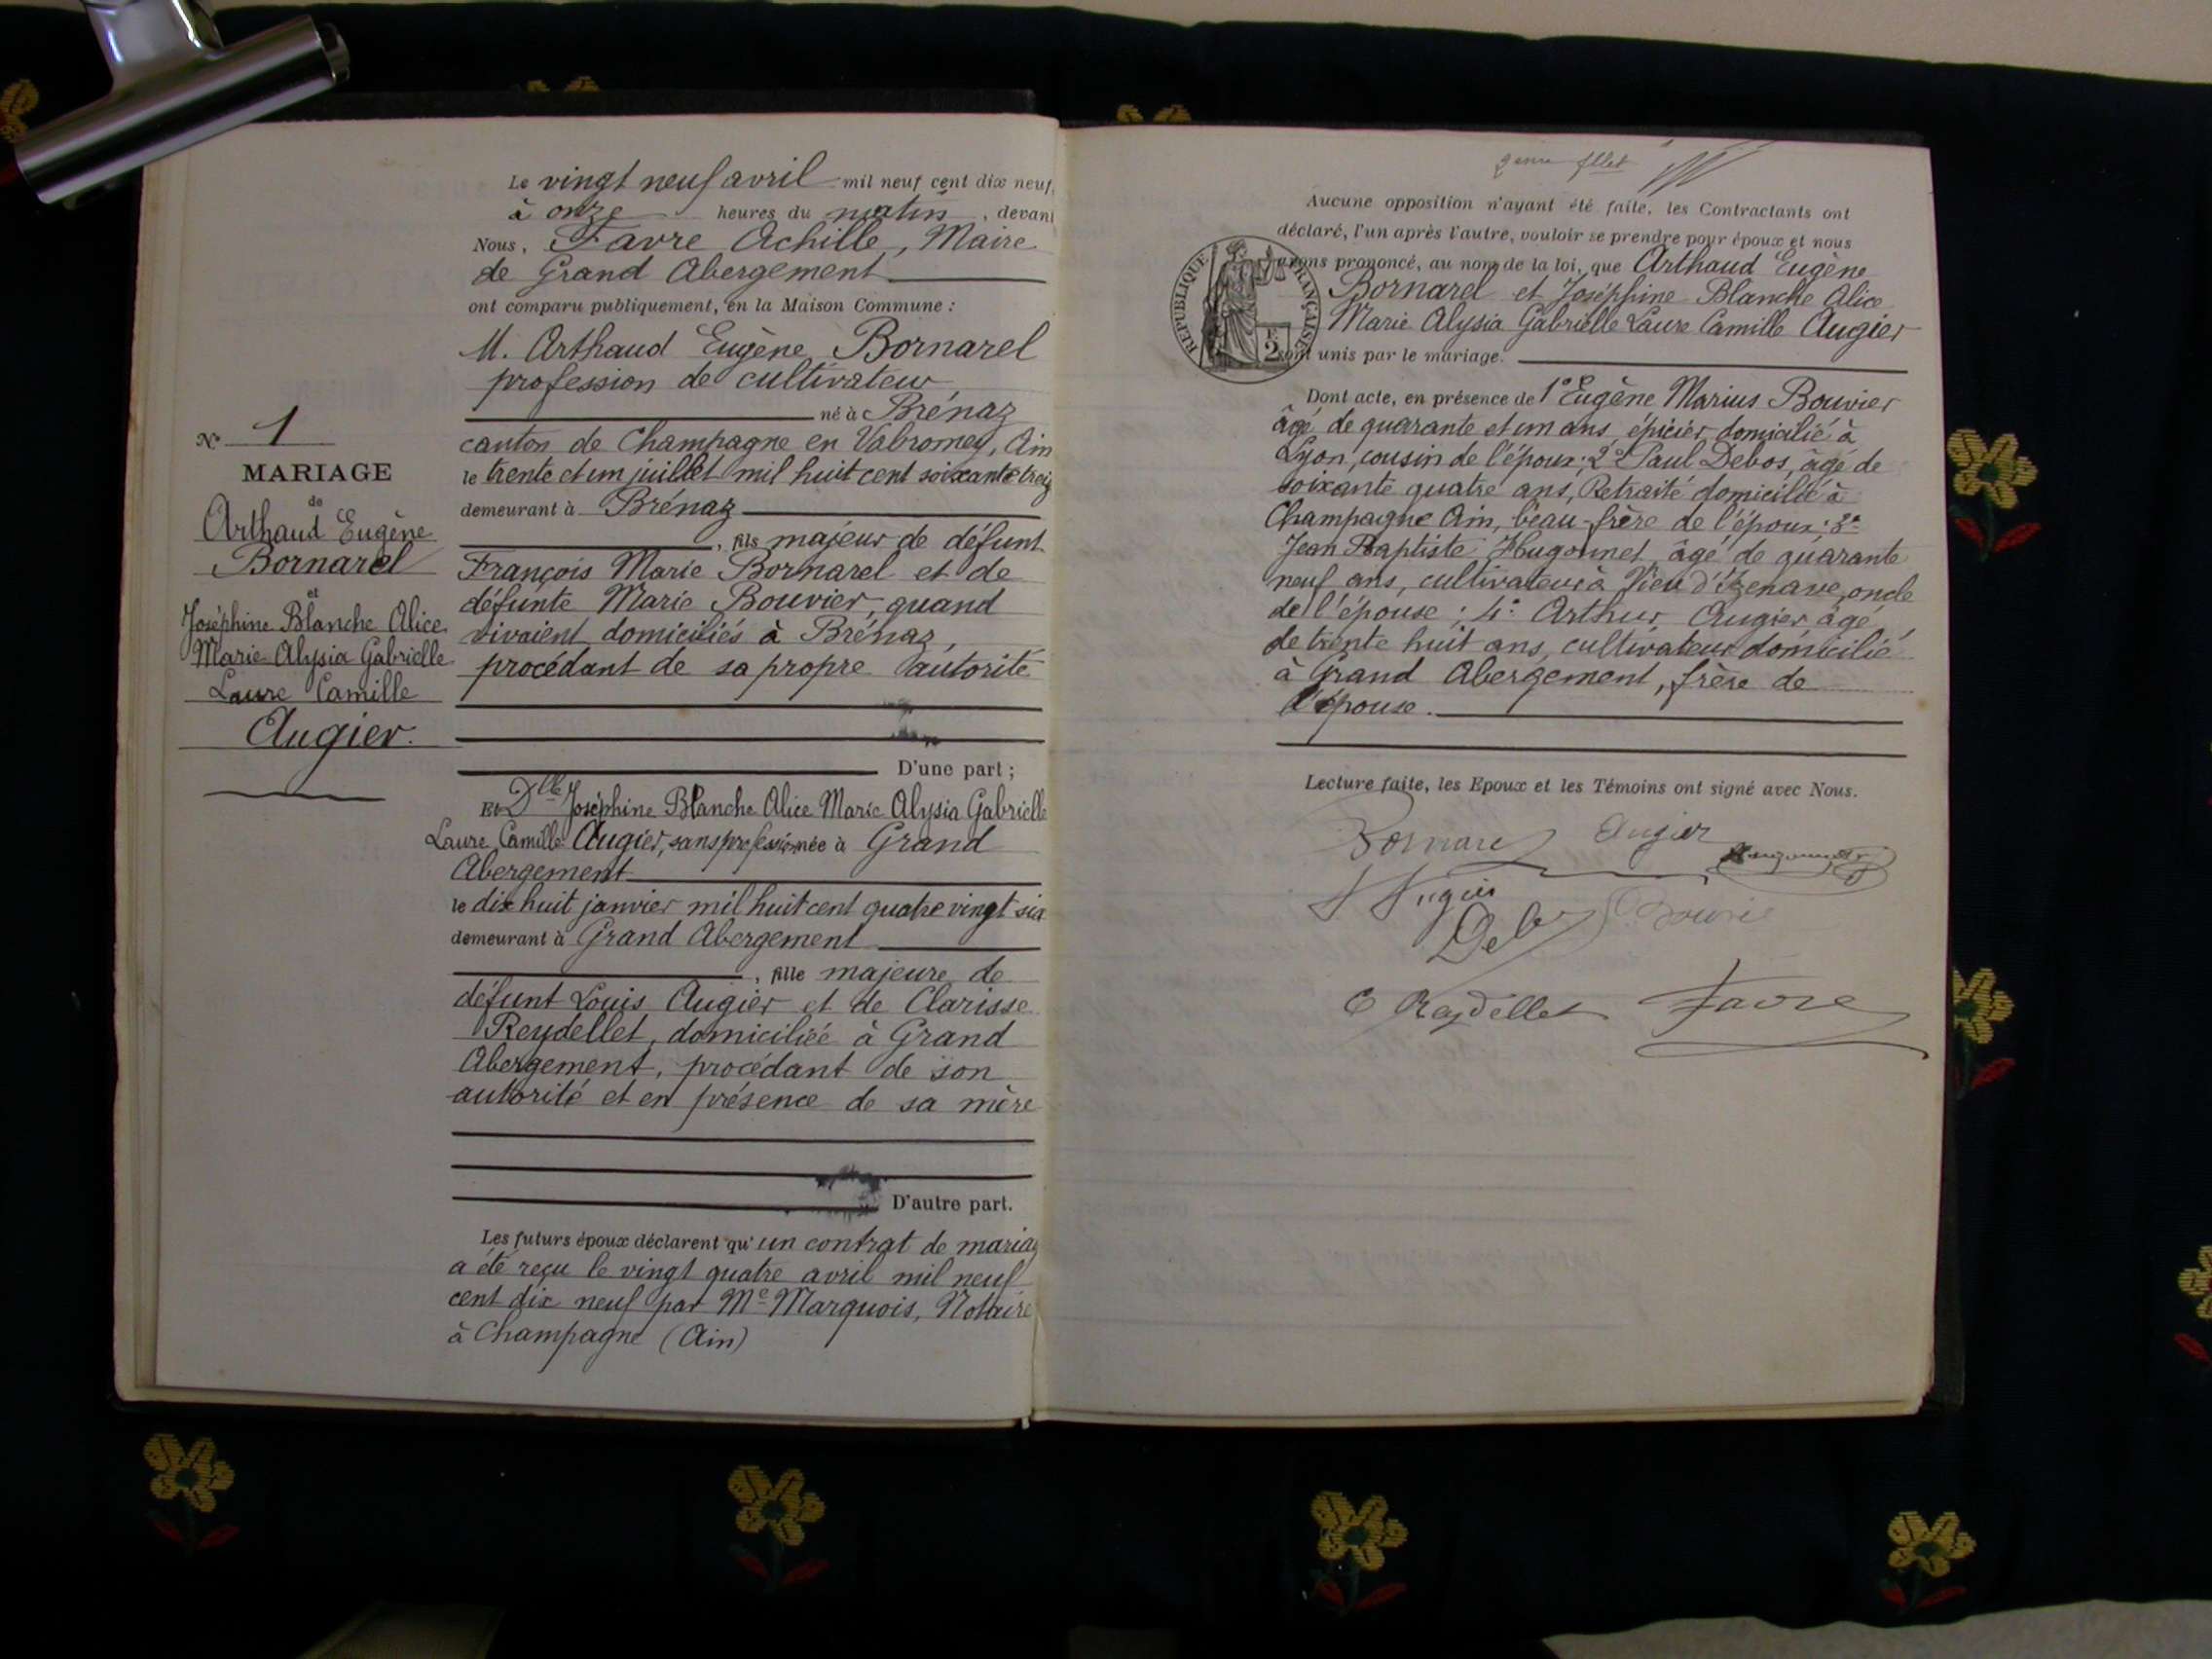 Le vingt neuf avril mil neuf cent dix neuf,
à onze heures du matin, devant
Nous, Favre Achille, Maire
de Grand Abergement
ont comparu publiquement, en la Maison Commune :
M. Arthaud Eugène Bornarel
profession de cultivateur
né à Brénaz
canton de Champagne en Valromey, Ain
le trente et un juillet mil huit cent soixante treiz
demeurant à Brénaz
, fils majeur de défunt
François Marie Bornarel et de
défunte Marie Bouvier, quand
vivaient domiciliés à Brénaz,
procédant de sa propre autorité
D'une part ;
Et Dlle Joséphine Blanche Alice Marie Alysia Gabrielle
Laure Camille Augier, sans profession née à Grand
Abergement
le dix huit janvier mil huit cent quatre vingt six
demeurant à Grand Abergement
, fille majeure de
défunt Louis Augier et de Clarisse
Reydellet, domiciliée à Grand
Abergement, procédant de son
autorité et en présence de sa mère
D'autre part.
Les futurs époux déclarent qu'un contrat de mariag
a été reçu le vingt quatre avril mil neuf
cent dix neuf par Me Marquois, Notaire
à Champagne (Ain)
No 1
MARIAGE
de
Arthaud Eugène
Bornarel
et
Joséphine Blanche Alice
Marie Alysia Gabrielle
Laure Camille
Augier.
2eme fllet
Aucune opposition n'ayant été faite, les Contractants ont
déclaré, l'un après l'autre, vouloir se prendre pour époux et nous
avons prononcé, au nom de la loi, que Arthaud Eugène
Bornarel et Joséphine Blanche Alice
Marie Alysia Gabrielle Laure Camille Augier
sont unis par le mariage.
RÉPUBLIQUE FRANÇAISE
2F
Dont acte, en présence de 1° Eugène Marius Bouvier
âgé de quarante et un ans, épicier, domicilié à
Lyon, cousin de l'époux; 2° Paul Debos, âgé de
soixante quatre ans, Retraité domicilié à
Champagne Ain, beau-frère de l'époux; 3°
Jean Baptiste Hugonnet âgé de quarante
neuf ans, cultivateur à Vieu d'Izenave, oncle
de l'épouse; 4° Arthur Augier âgé
de trente huit ans, cultivateur domicilié
à Grand Abergement, frère de
l'épouse.
Lecture faite, les Epoux et les Témoins ont signé avec Nous.
Bornarel Augier Hugonnet
Augier
Debos Bouvie
C Reydellet Favre